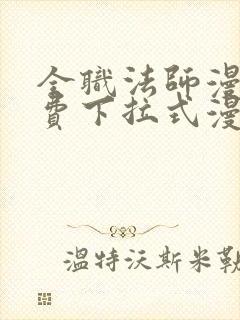 全職法師漫
費下拉式漫
溫特沃斯米勒